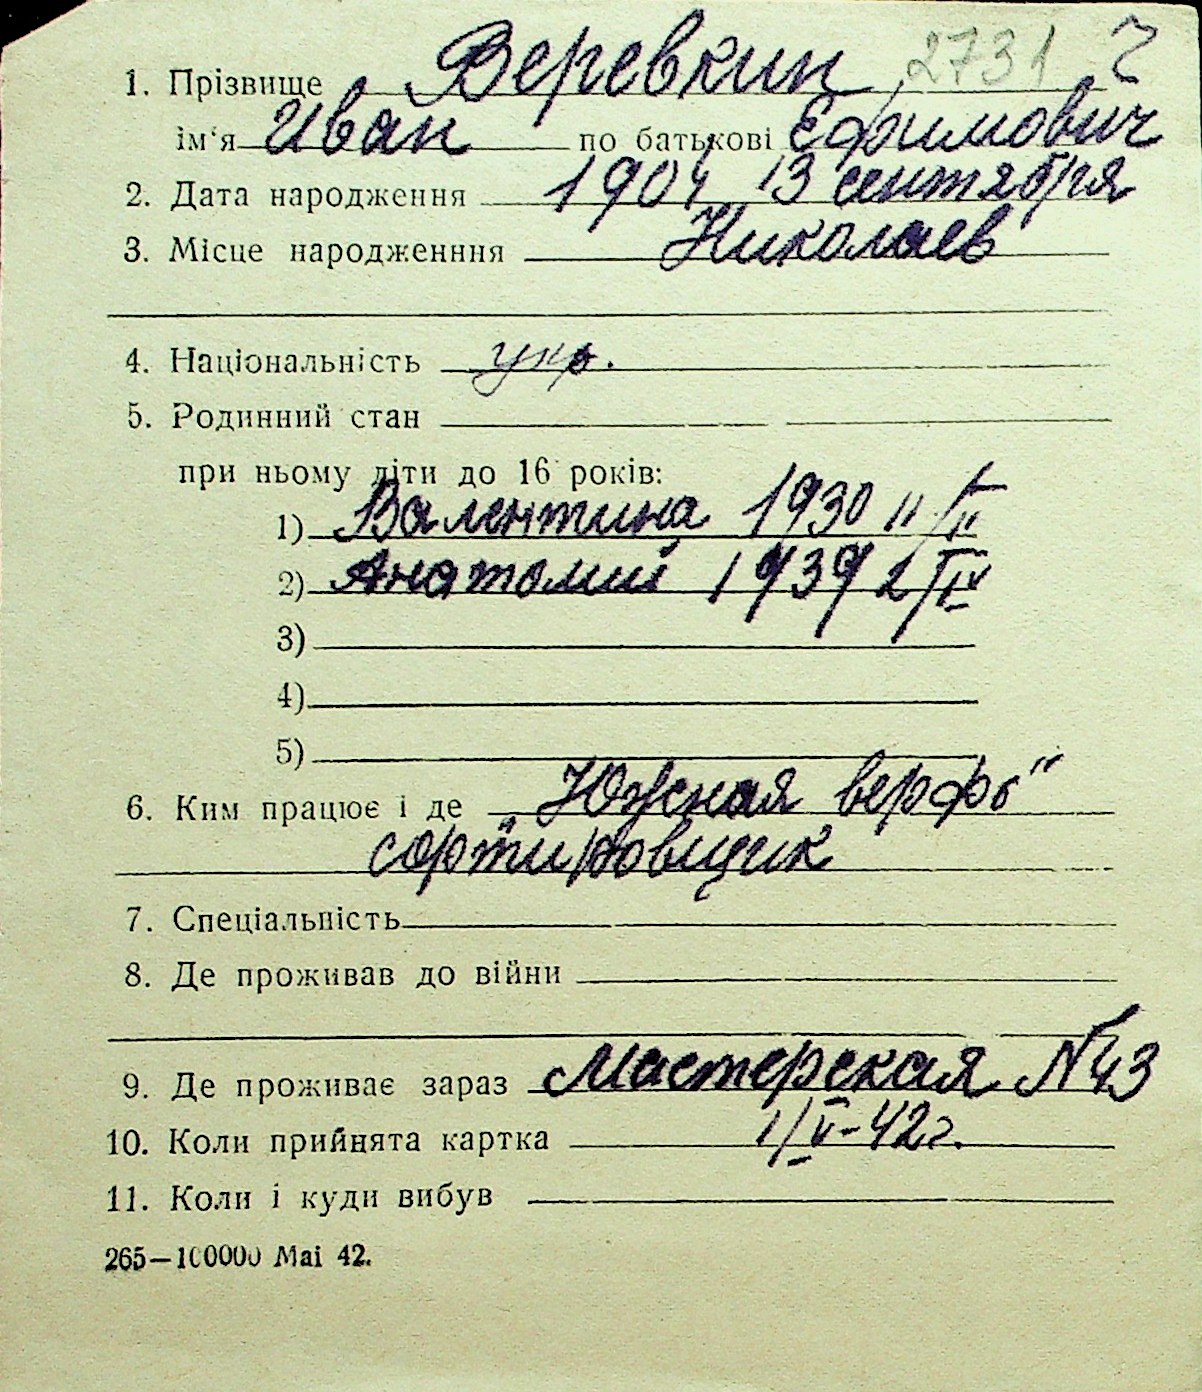 2731 ч
1. Прізвище Веревкин
ім'я Иван по батькові Ефимович
2. Дата народження 1904 13 сентября
3. Місце народженння Николаев
4. Національність укр.
5. Родинний стан
при ньому діти до 16 років:
1) Валентина 1930 11/II
2) Анатолий 1939 2/IV
3)
4)
5)
6. Ким працює і де "Южная верфь"
сортировщик
7. Спеціальність
8. Де проживав до війни
9. Де проживає зараз Мастерская №43
10. Коли прийнята картка 1/V-42г.
11. Коли і куди вибув
265—100000 Mai 42.